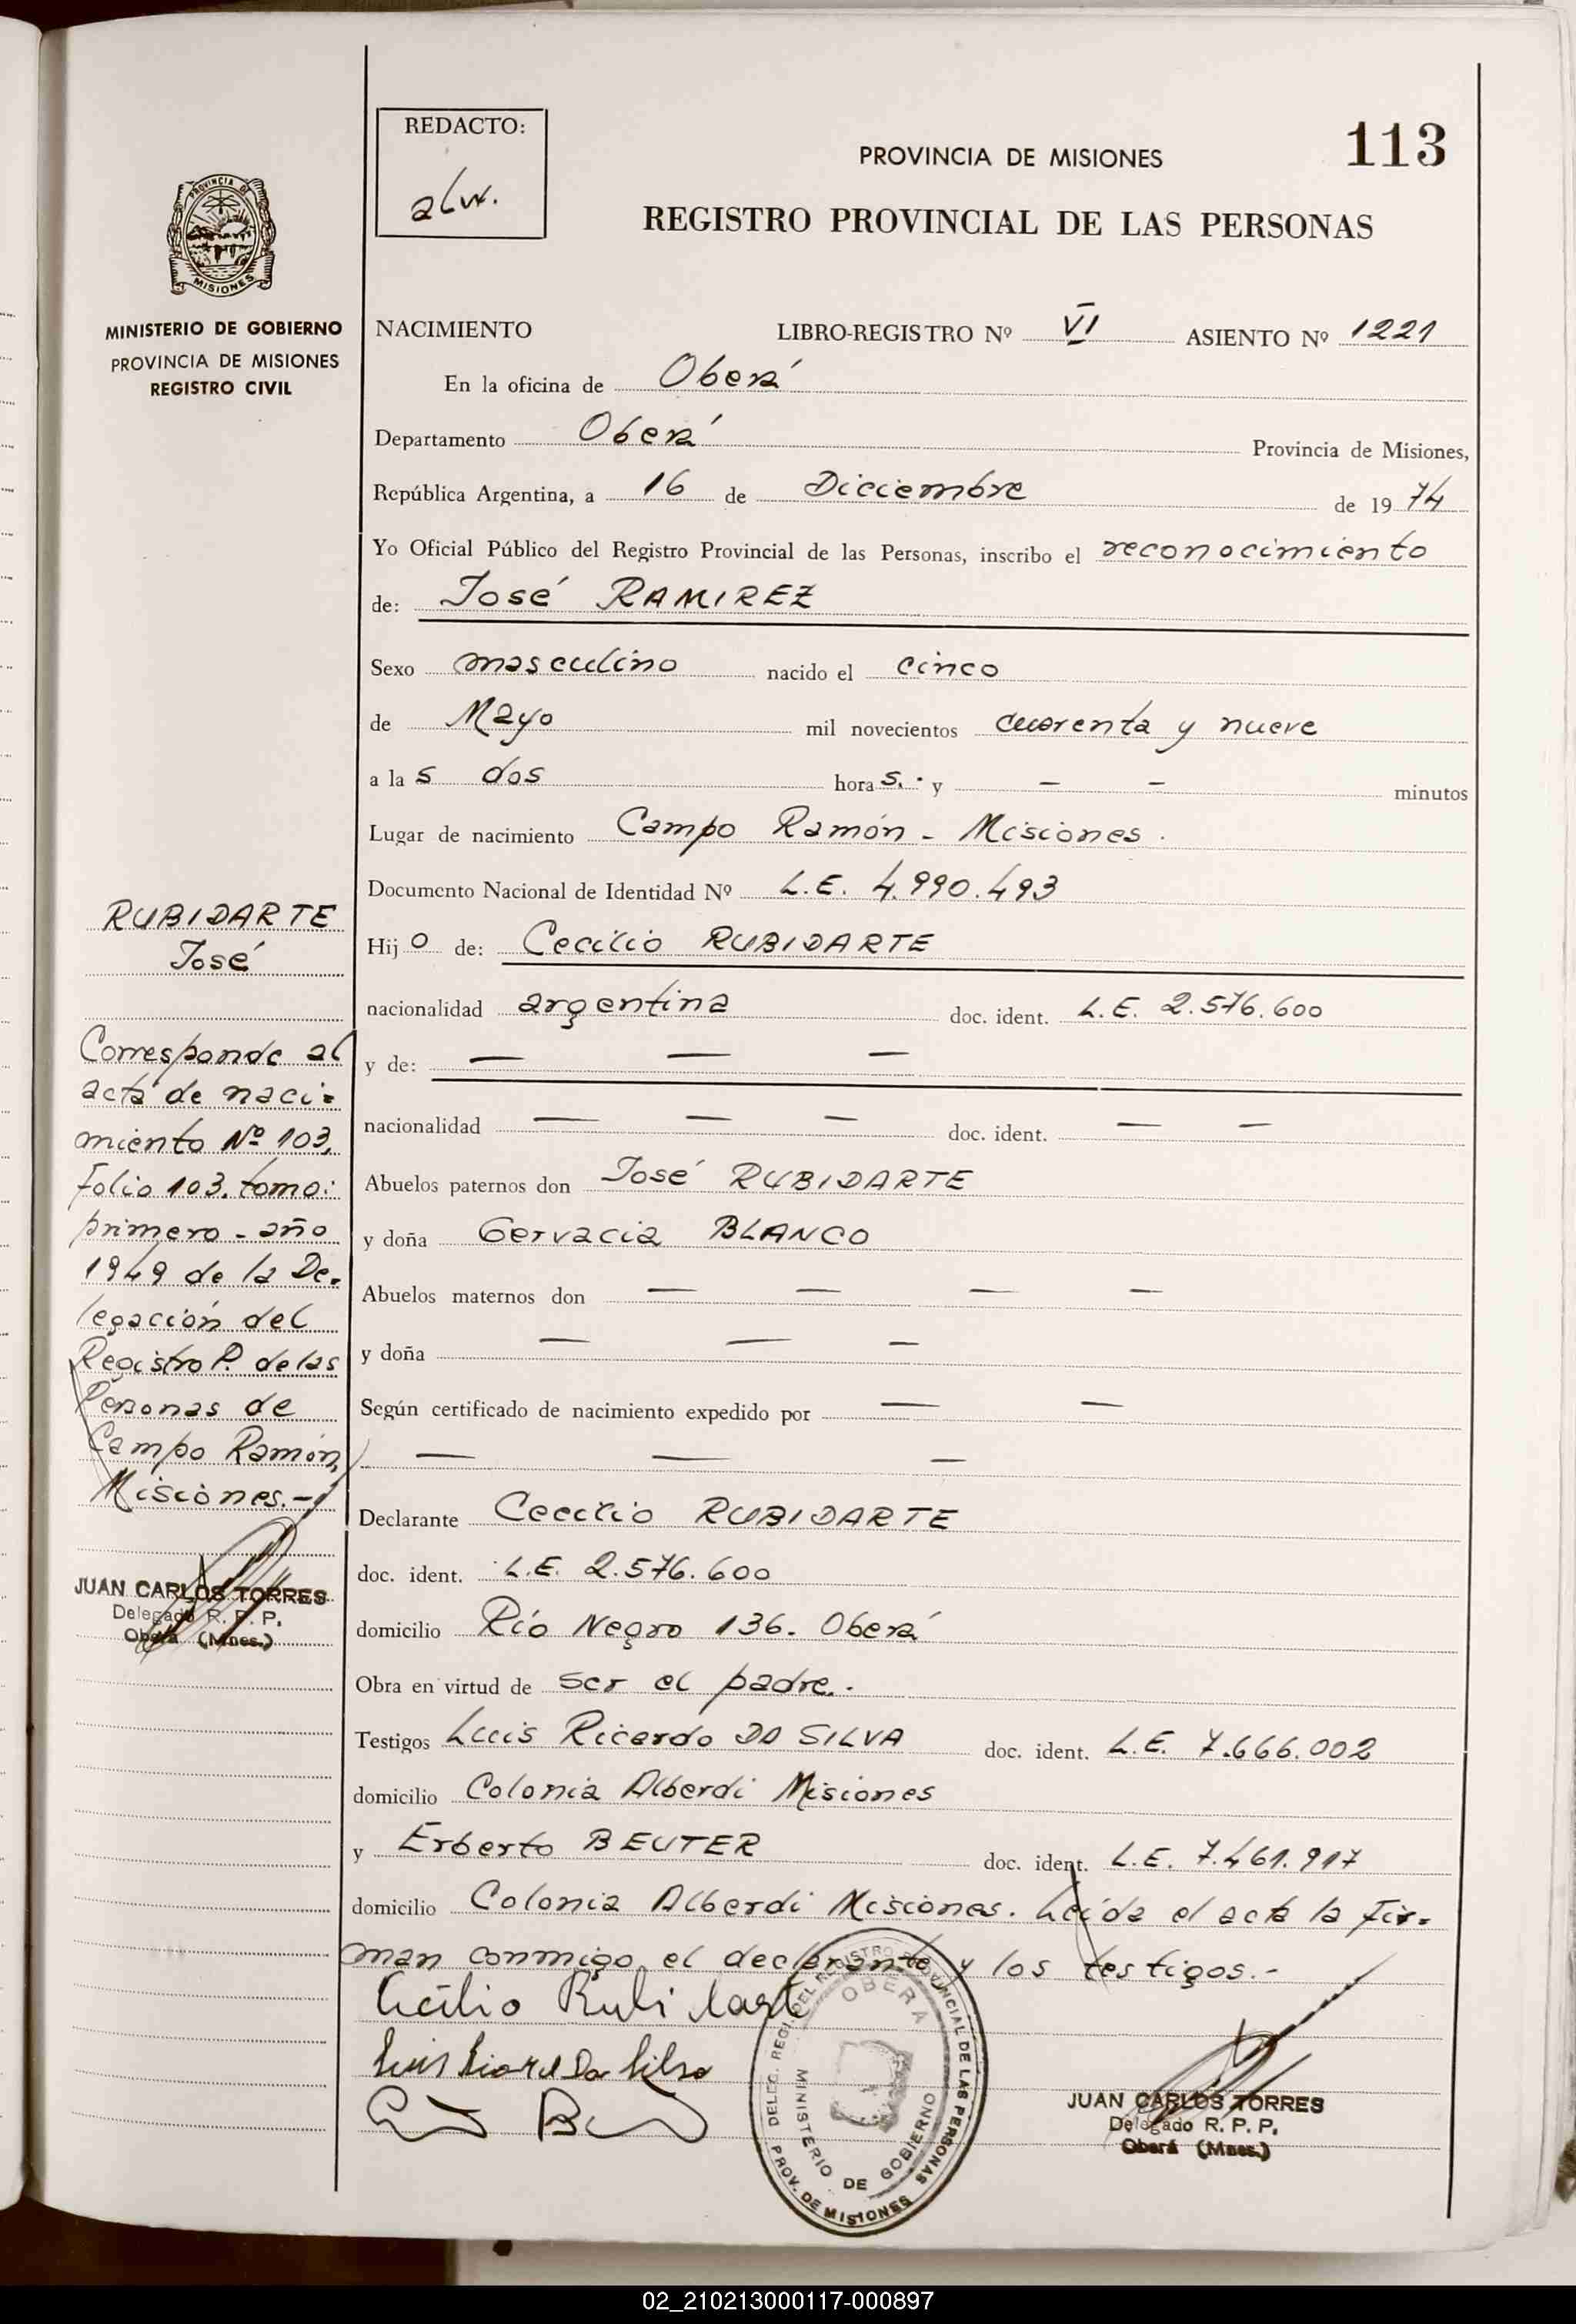 REDACTO:
alw.
113
PROVINCIA DE MISIONES
REGISTRO PROVINCIAL DE LAS PERSONAS
PROVINCIA DE
MISIONES
MINISTERIO DE GOBIERNO
PROVINCIA DE MISIONES
REGISTRO CIVIL
NACIMIENTO LIBRO-REGISTRO Nº VI ASIENTO Nº 1221
En la oficina de Oberá
Departamento Oberá Provincia de Misiones,
República Argentina, a 16 de Diciembre de 1974
Yo Oficial Público del Registro Provincial de las Personas, inscribo el reconocimiento
de: José RAMIREZ
Sexo masculino nacido el cinco
de Mayo mil novecientos cuarenta y nueve
a las dos horas. y — — minutos
Lugar de nacimiento Campo Ramón - Misiones.
Documento Nacional de Identidad Nº L.E. 4.990.493
Hijo de: Cecilio RUBIDARTE
nacionalidad argentina doc. ident. L.E. 2.576.600
y de: — — —
nacionalidad — — — doc. ident. — —
Abuelos paternos don José RUBIDARTE
y doña Gervacia BLANCO
Abuelos maternos don — — — —
y doña — — —
Según certificado de nacimiento expedido por — —
— — —
Declarante Cecilio RUBIDARTE
doc. ident. L.E. 2.576.600
domicilio Río Negro 136. Oberá
Obra en virtud de ser el padre.-
Testigos Luis Ricardo DA SILVA doc. ident. L.E. 7.666.002
domicilio Colonia Alberdi Misiones
y Erberto BEUTER doc. ident. L.E. 7.461.917
domicilio Colonia Alberdi Misiones. Leída el acta la fir-
man conmigo el declarante y los testigos.-
RUBIDARTE
José
Corresponde al
acta de naci-
miento Nº 103,
folio 103. tomo:
primero - año
1949 de la De-
legación del
Registro P. de las
Personas de
Campo Ramón,
Misiones.-
JUAN CARLOS TORRES
Delegado R. P. P.
Oberá (Mnes.)
Cecilio Rubidart
Luis Ricard Da Silva
DELEG. REGI. DEL REGISTRO PROVINCIAL DE LAS PERSONAS
OBERA
MINISTERIO DE GOBIERNO
PROV. DE MISIONES
JUAN CARLOS TORRES
Delegado R. P. P.
Oberá (Mnes.)
02_210213000117-000897